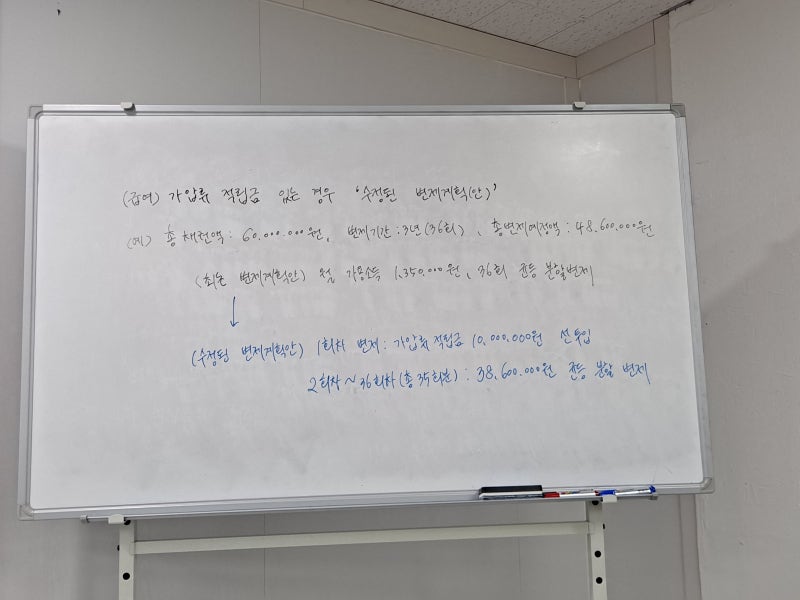 (급여) 가압류 적립금 있는 경우 '수정된 변제계획(안)'
(예) 총 채권액 : 60,000,000원, 변제기간 : 3년(36회), 총변제예정액 : 48,600,000원
(최초 변제계획안) 월 가용소득 1,350,000원, 36회 균등 분할변제
↓
(수정된 변제계획안) 1회차 변제 : 가압류 적립금 10,000,000원 선 투입
2회차~36회차(총 35회분) : 38,600,000원 균등 분할 변제